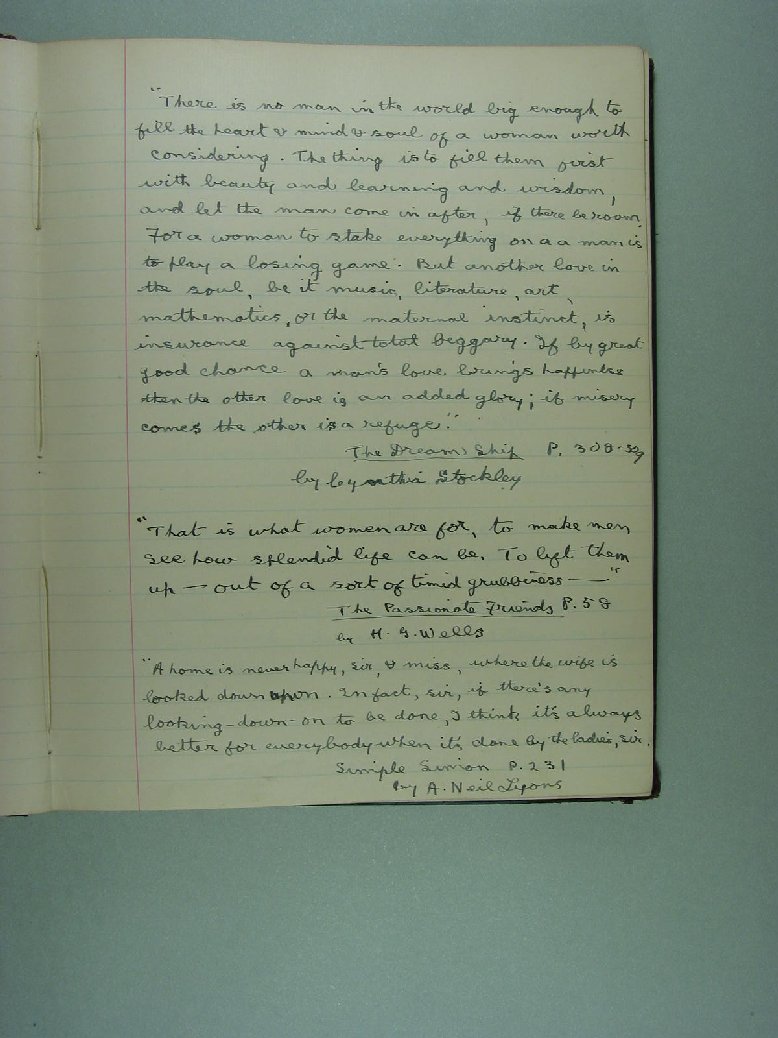 "There is no man in the world big enough to
fill the heart & mind & soul of a woman worth
considering. The thing is to fill them first
with beauty and learning and wisdom,
and let the man come in after, if there be room.
For a woman to stake everything on a a man is
to play a losing game. But another love in
the soul, be it music, literature, art,
mathematics, or the maternal instinct, is
insurance against total beggary. If by great
good chance a man's love brings happiness
then the other love is an added glory; if misery
comes the other is a refuge."
The Dream Ship P. 308.
by Cynthia Stockley
"That is what women are for, to make men
see how splendid life can be. To lift them
up — out of a sort of timid grubbiness — —"
The Passionate Friends P. 58
by H. G. Wells
"A home is never happy, sir, & miss, where the wife is
looked down upon. In fact, sir, if there's any
looking-down-on to be done, I think it's always
better for everybody when it's done by the ladies, sir.
Simple Simon P. 231
by A. Neil Lyons